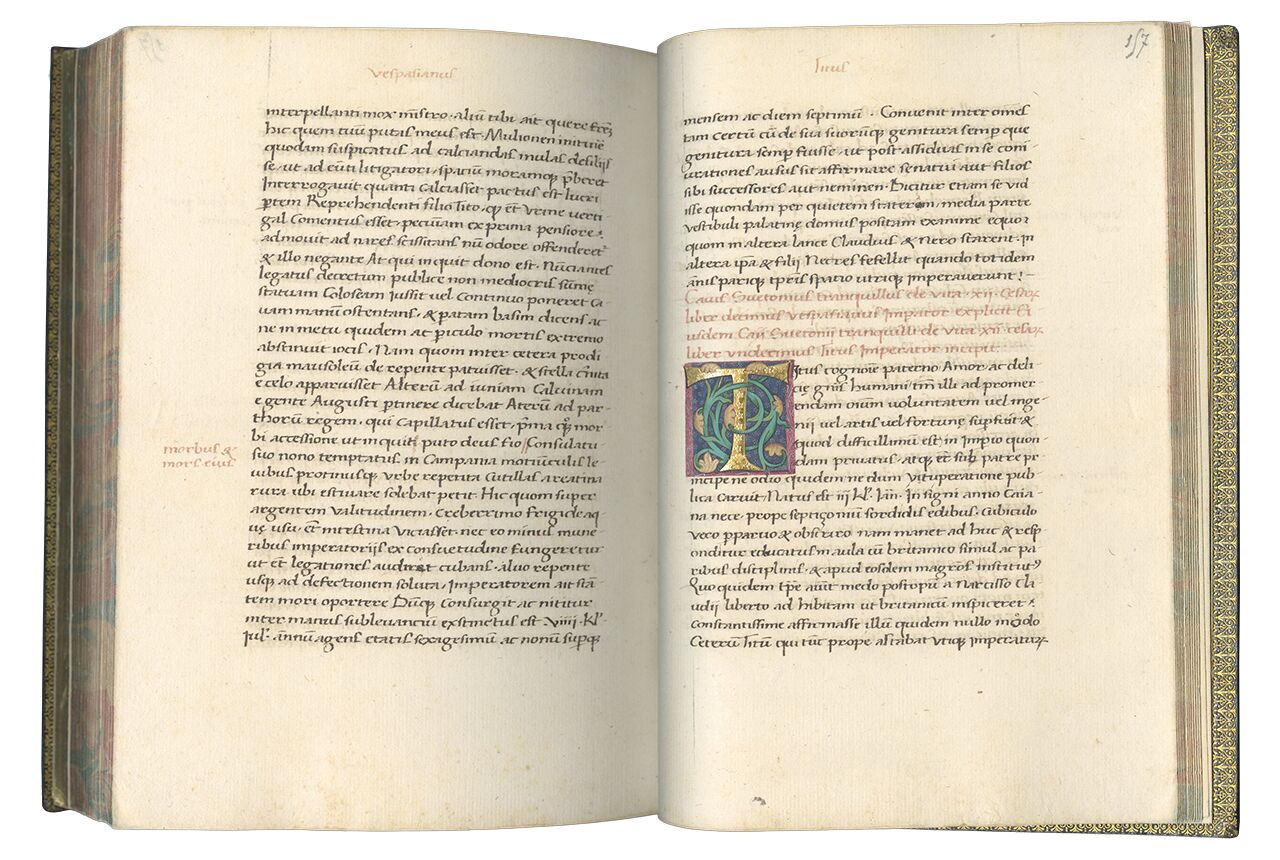 vespasianus
interpellanti mox mīstro. aliū tibi ait quere
hic quem tuū putas meus est. Mulionen initiuie
quodam suspicatus ad calciandas mulas desiliss
se. ut ad eūti litigatori. spatiū moramq p̄beret
Interrogauit quanti Calciasset pactus est lucri
ptem Reprehendenti filio Tito. qȝ et Urine uecti
gal Comentus esset. pecuiam ex prima pensione.
admouit ad nares scissitans nū odore offenderet
& illo negante At qui inquit dono est. Nūciantes
legatus decretum publice non mediocris sūme
statuam Coloseam Iussit uel Continuo poneret ca
uam manū ostentans. & patam basim dicens ac
ne in metu quidem ac piculo mortis extremo
abstinuit iocis. Nam quom inter cetera prodi
gia mausoleū de repente patuisset. & stella crinita
e celo apparuisset Alterū ad iuniam Caluinam
e gente Augusti ptinere dicebat Aterū ad par
thorū regem. qui Capillatus esset. p̄ma qȝ mor
bi accessione ut inquit puto deus fio Consulatu
suo nono temptatus in Campania motiūculis le
morbus &
mors eius
uibus protinusqȝ Urbe repetita Cutillas areatina
rura ubi estiuare solebat petit. Hic quom super
argentem ualitudinem. Creberrimo frigide aq
uę usu. et intestina Uicasset. nec eo minus mune
ribus imperatorijs ex Consuetudine fungeretur
ut et legationes audiret cubans. aluo repente
usqȝ ad defectionem soluta. Imperatorem ait stā
tem mori oportere Dūqȝ Consurgit ac nititur
inter manus subleuanciū exstinctus est Viiii. Kl'.
Iul'. annū agens etatis sexagesimū ac nonū supqȝ
Titus
157
mensem ac diem septimū. Conuenit inter omēs
tam certū cū de sua suorūqȝ genitura semp que
genitura semp fuisse. ut post assiduas in se coni
urationes ausus sit affirmare senatui aut filios
sibi successores aut neminen. Dicitur etiam se uid
isse quondam per quietem stateram. media parte
uestibuli palatinę domus positam examine equo
quom in altera lance Claudius & Nero starent. in
altera ipā & filij Nec res fefellit quando totidem
anus pariqȝ tpris spatio utriqȝ imperauerunt!
Caius Suetonius tranquillus de uita xii. Cesar
liber decimus Vespasianus Imparot explicit Ei
usdem Caii Suetonii tranquilli de uita xii cesar
liber undecimus Titus Imperator incipit.
Titus cognoīe paterno Amor ac deli
cię gn̄is humani tm̄ illi ad promer
endam oiūm uoluntatem uel inge
nij uel artis uel fortune supfuit &
quod difficillimū est in Impio quon
dam priuatus. atqȝ et sub patre pr
incipe ne odio quidem ne dum Vituperatione pub
lica Caruit Natus est iij Kl'. Ian. In signi anno Caia
na nece. prope septiçomū sordidis edibus. Cubiculo
uero pparuo & obscuro nam manet ad huc & resp
onditur educatus in aula cū britanico simul ac pa
ribus disciplinis. & apud eosdem magros institutus
Quo quidem tpe aiūt medo postopū a Narcisso Cla
udii liberto ad hibitam ut britanicū inspiceret.
Constantissime affirmasse illū quidem nullo modo
Ceterū Titū qui tūc prope astabat Utiqȝ imperatur